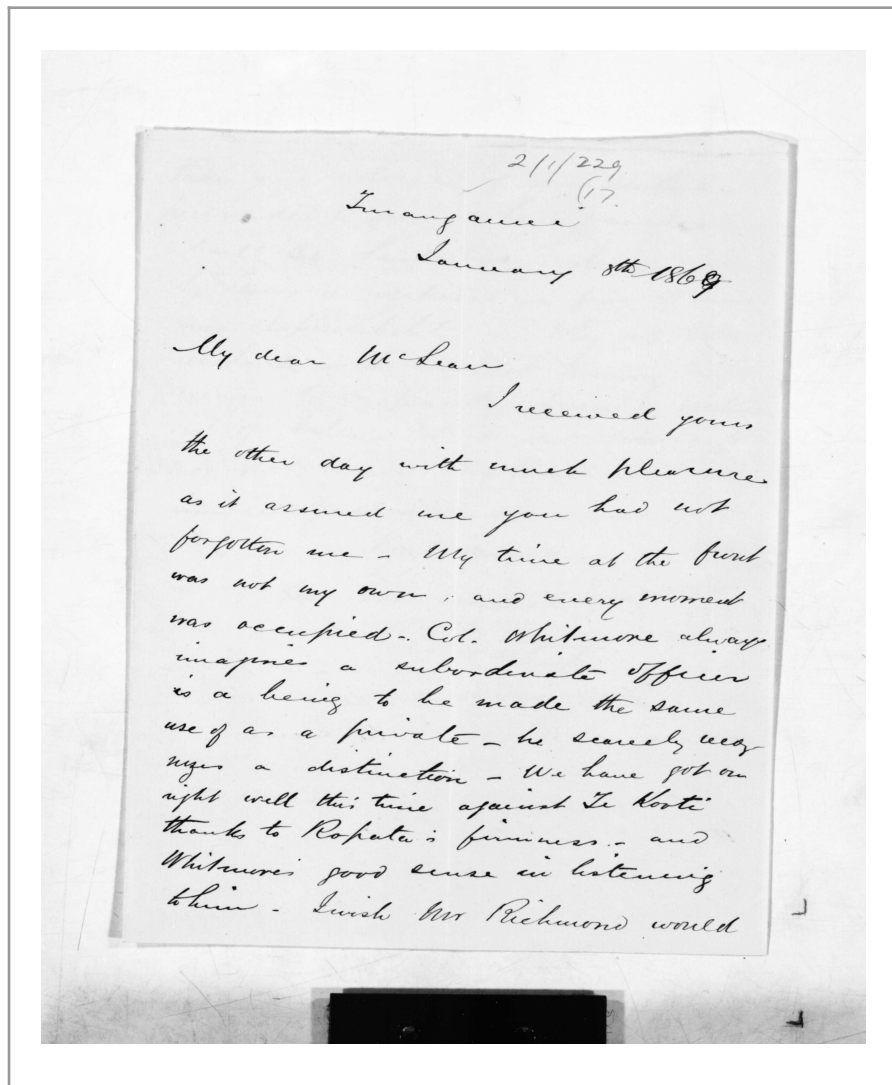 2/1/229
(17.
Turanganui
January 8th 1869
My dear McLean
I received yours
the other day with much pleasure
as it assured me you had not
forgotten me - My time at the front
was not my own, and every moment
was occupied - Col. Whitmore always
imagines a subordinate officer
is a being to be made the same
use of as a private - he scarcely recog
nizes a distinction - We have got on
right well this time against Te Kooti
thanks to Ropata's firmness - and
Whitmore's good sense in listening
to him - I wish Mr Richmond would